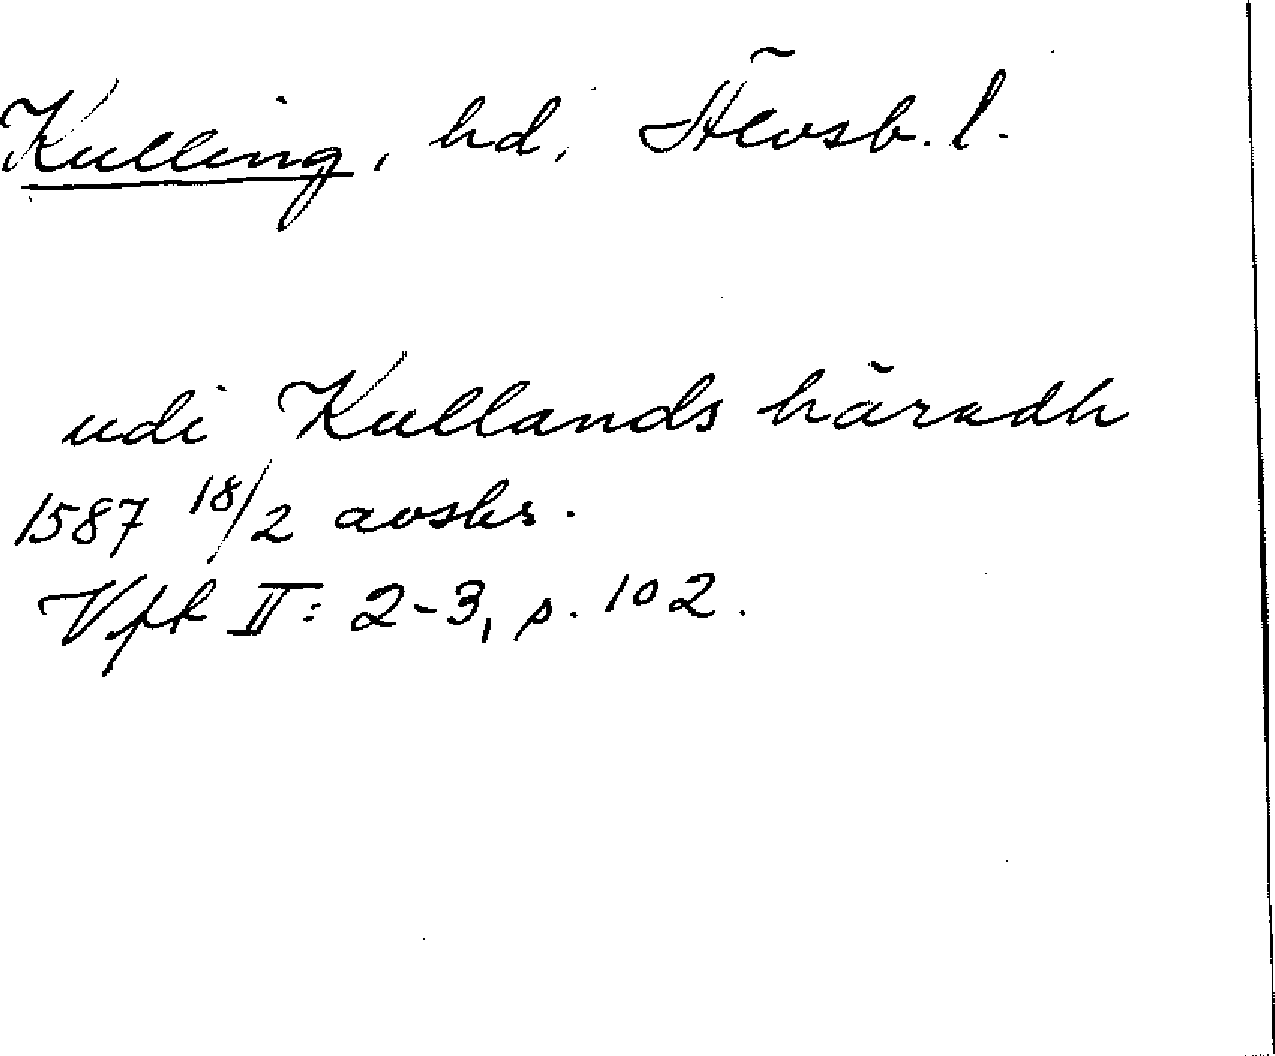 Kulling, hd, Älvsb. l.
udi Kullands häradh
1587 18/2 avskr.
Vfk II: 2-3, p. 102.